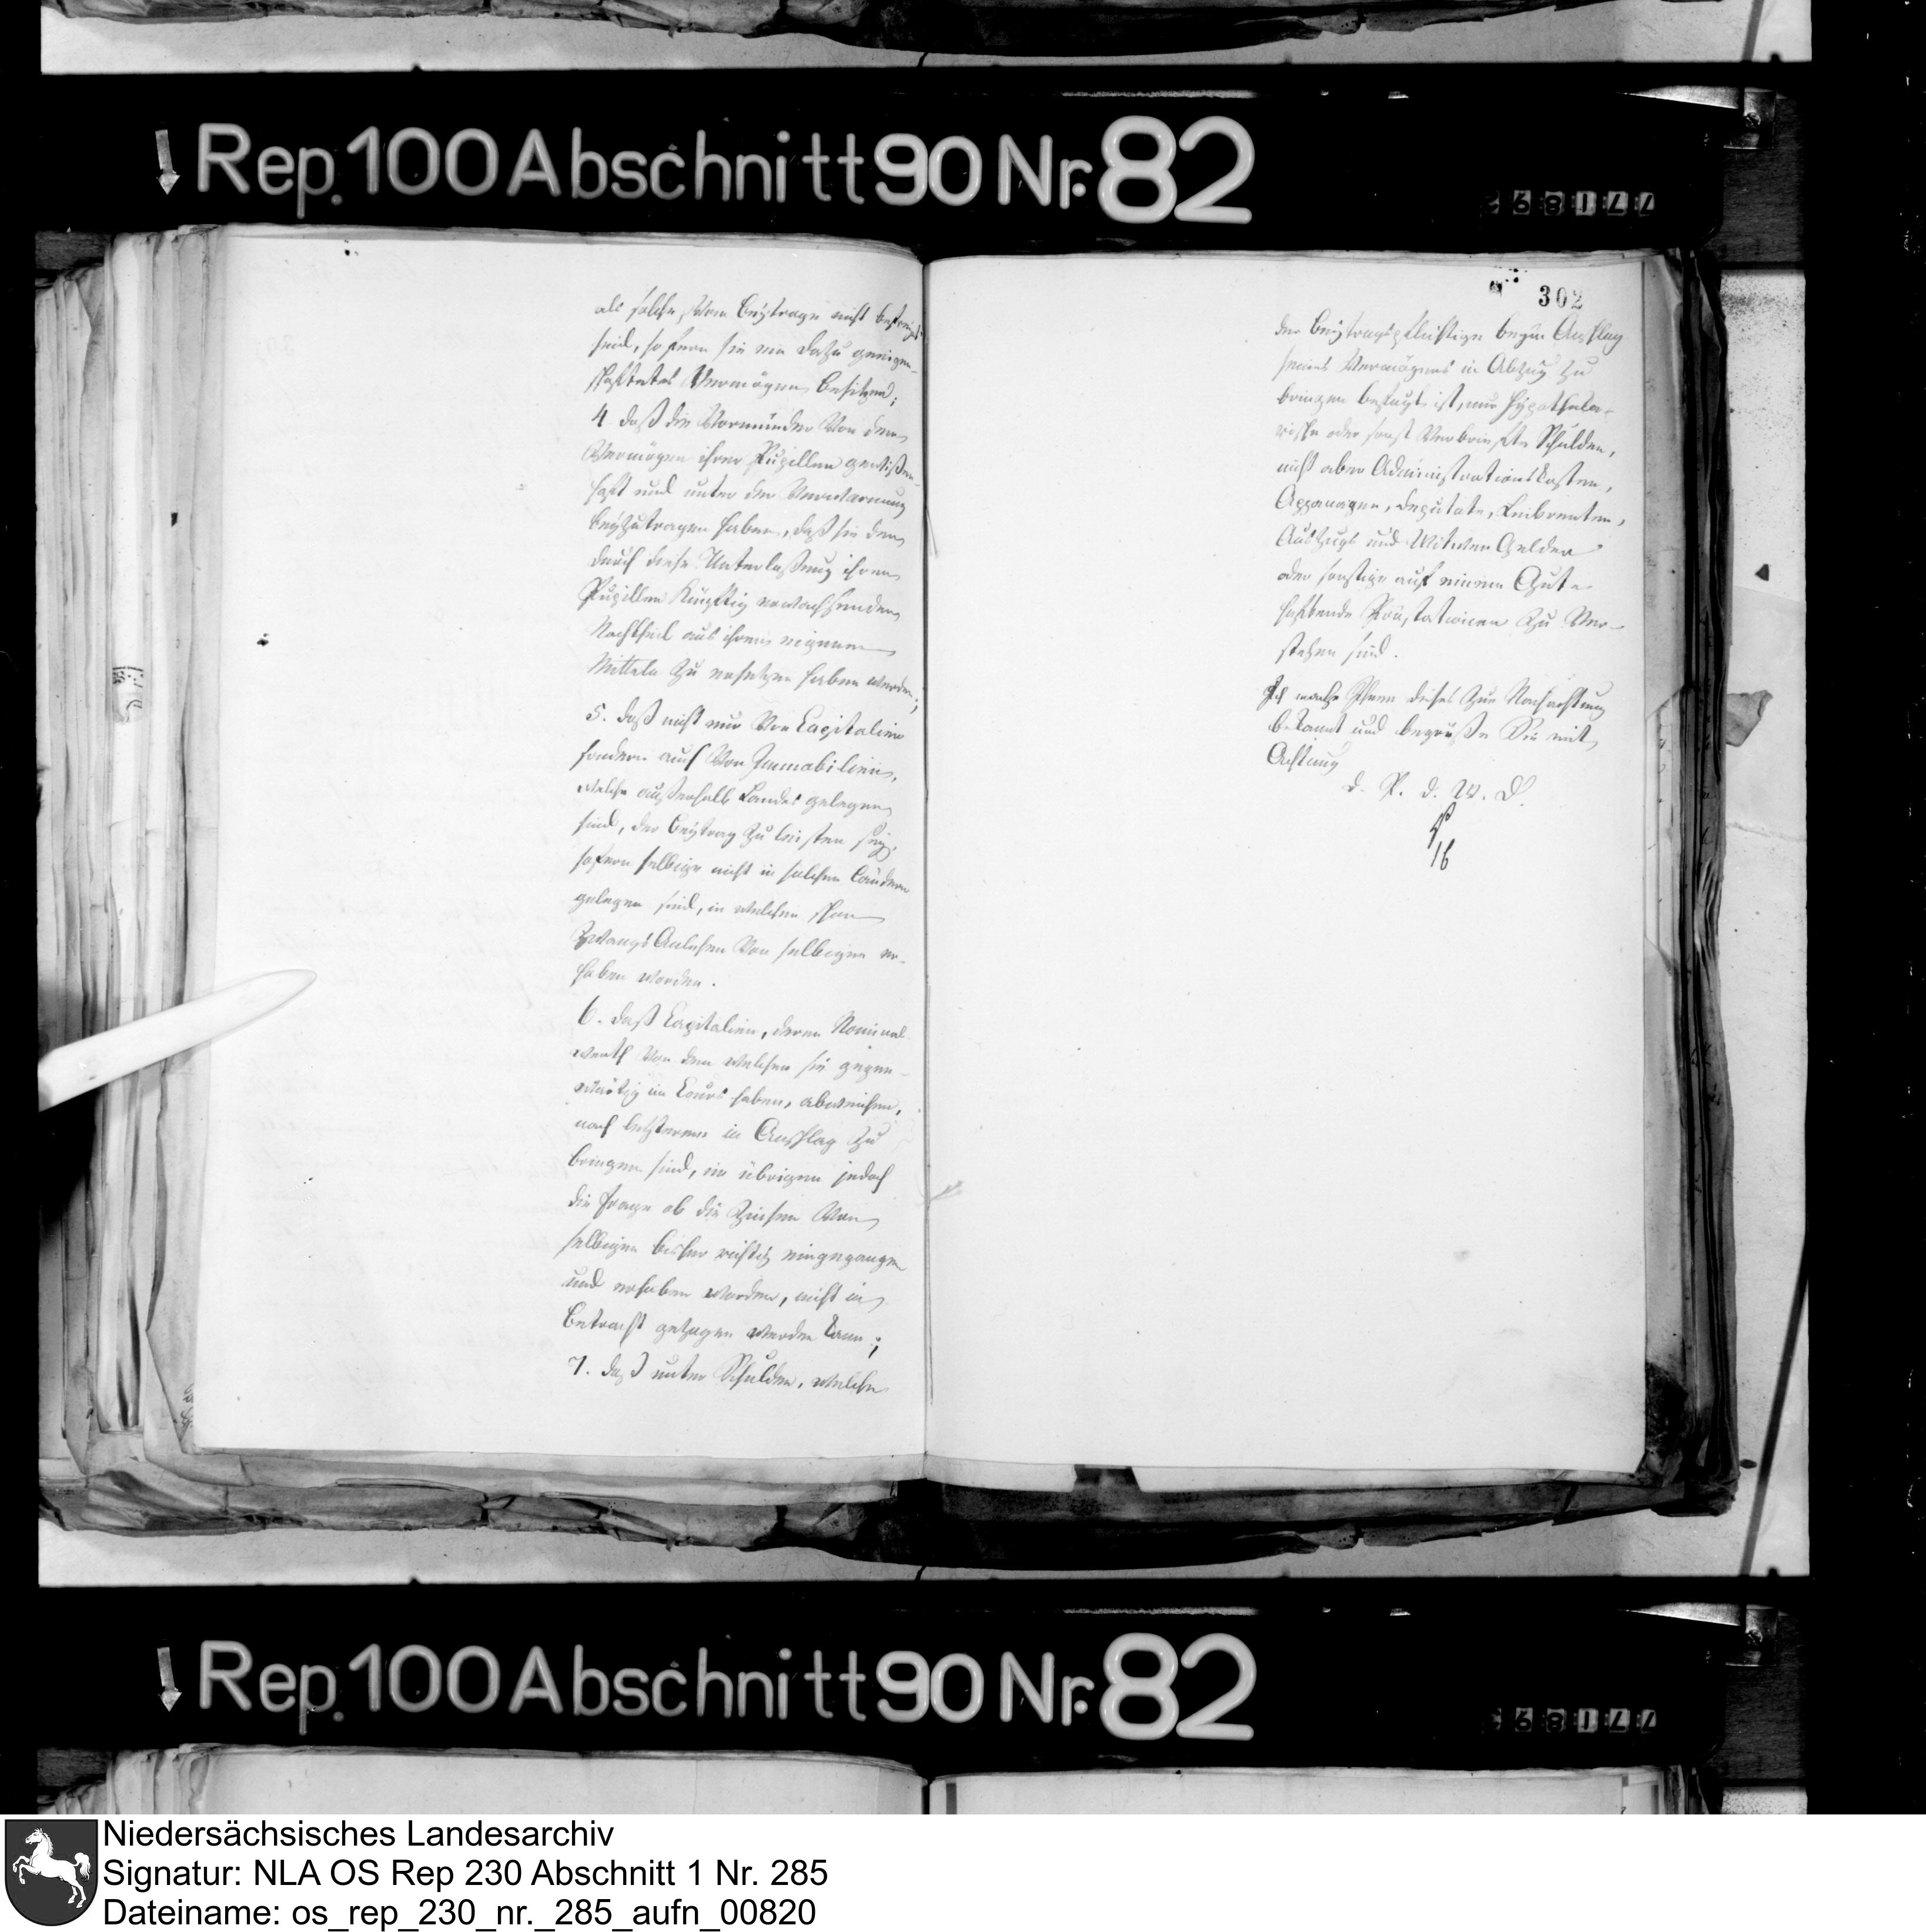 Rep. 100 Abschnitt 90 Nr. 82
als solche, vom Beytrage nicht befreyet
sind, so fern sie ein dazu geeigen-
schaftetes Vermögen besitzen;
4 daß die Vormünder von dem
Vermögen ihrer Pupillen gewißen-
haft und unter der Verwarnung
beyzutragen haben, daß sie den
durch diese Unterlaßung ihren
Pupillen künftig erwachsenden
Nachtheil aus ihren eigenen
Mitteln zu ersetzen haben werden;
5. daß nicht nur von Capitalien
sondern auch von Immobilien,
welche außerhalb Landes gelegen
sind, der Beytrag zu leisten sey,
sofern selbige nicht in solchen Ländern
gelegen sind, in welchen schon
Zwangs Anlehen von selbigen er-
hoben worden.
6. daß Capitalien, deren Nominal
werth von dem welchen sie gegen-
wärtig im Cours haben, abweichen,
nach letzterem in Anschlag zu
bringen sind, im übrigen jedoch
die Frage ob die Zinsen von
selbigen bisher richtig eingegangen
und erhoben worden, nicht in
Betracht gezogen werden kann;
7. daß unter Schulden, welche
302
der Beytragspflichtige beym Anschlag
seines Vermögens in Abzug zu
bringen befugt ist, nur hypotheka-
rische oder sonst verbriefte Schulden,
nicht aber Administrationskosten,
Appanagen, Deputate, Leibrenten,
Auszugs und Witwen Gelder
oder sonstige auf einem Gute
haftende Praestationen zu ver-
stehen sind.
Ich mache Ihnen dieses zur Nachachtung
bekannt und begrüße Sie mit
Achtung
d. P. d. W. D.
16
Rep. 100 Abschnitt 90 Nr. 82
Niedersächsisches Landesarchiv
Signatur: NLA OS Rep 230 Abschnitt 1 Nr. 285
Dateiname: os_rep_230_nr._285_aufn_00820